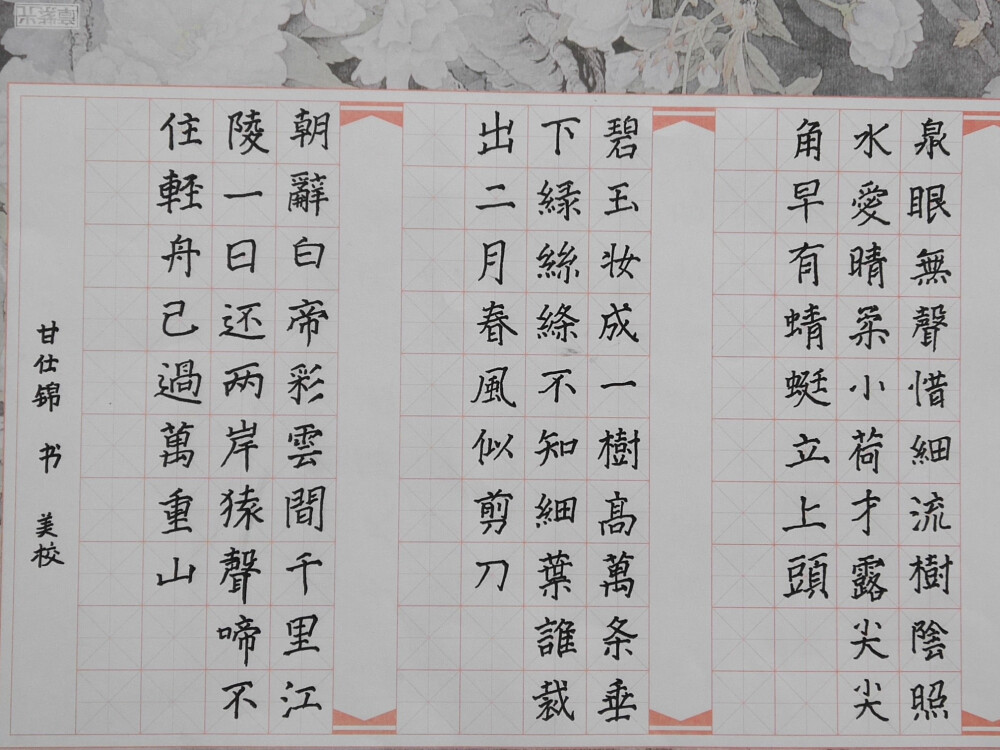 泉眼無聲惜細流樹陰照
水愛晴柔小荷才露尖尖
角早有蜻蜓立上頭
碧玉妆成一樹高萬条垂
下緑絲絛不知細葉誰裁
出二月春風似剪刀
朝辭白帝彩雲間千里江
陵一日还两岸猿聲啼不
住軽舟己過萬重山
甘仕锦 书 美校